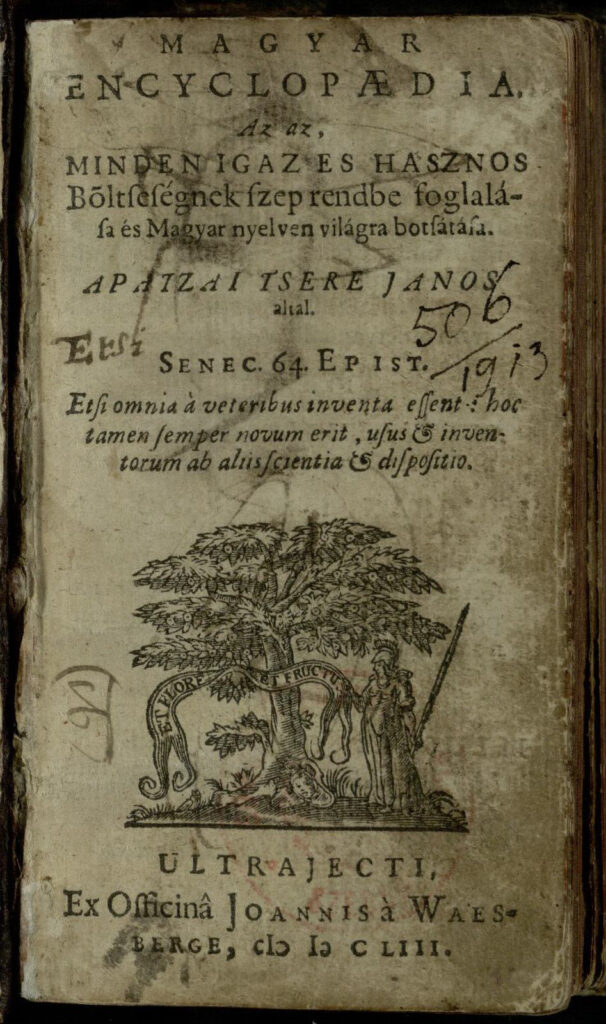 MAGYAR
ENCYCLOPÆDIA,
Az az,
MINDEN IGAZ ES HASZNOS
Bõltseségnek ſzep rendbe foglalá-
ſa és Magyar nyelven világra botſátáſa.
APATZAI TSERE JANOS
altal.
506
/1913
Etsi
SENEC. 64. EPIST.
Etſi omnia à veteribus inventa eſſent: hoc
tamen ſemper novum erit, uſus & inven-
torum ab aliis ſcientia & diſpoſitio.
ET FLORE ET FRUCTU
ULTRAJECTI,
Ex Officinâ JOANNIS à WAES-
BERGE, cIɔ Iɔ CLIII.